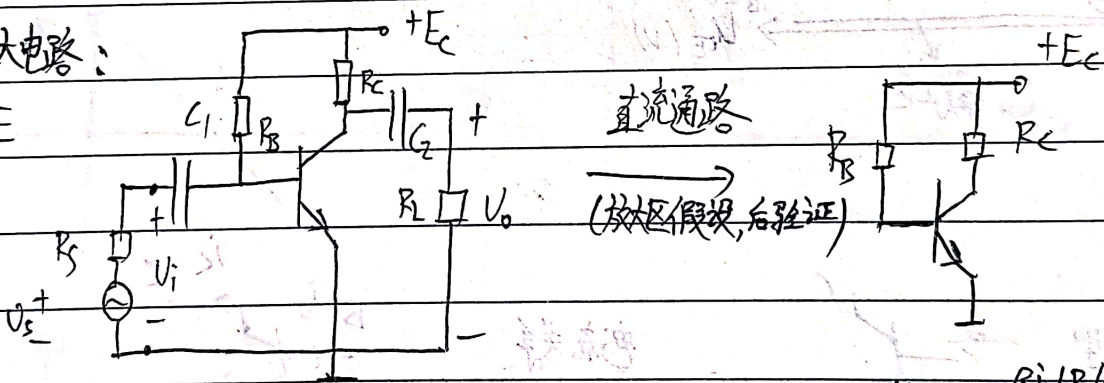 大电路：
+Ec
Rc
C1
RB
C2
+
RL
Uo
+
Rs
Ui
Us
+
-
-
-
直流通路
(放大区假设,后验证)
+Ec
RB
Rc